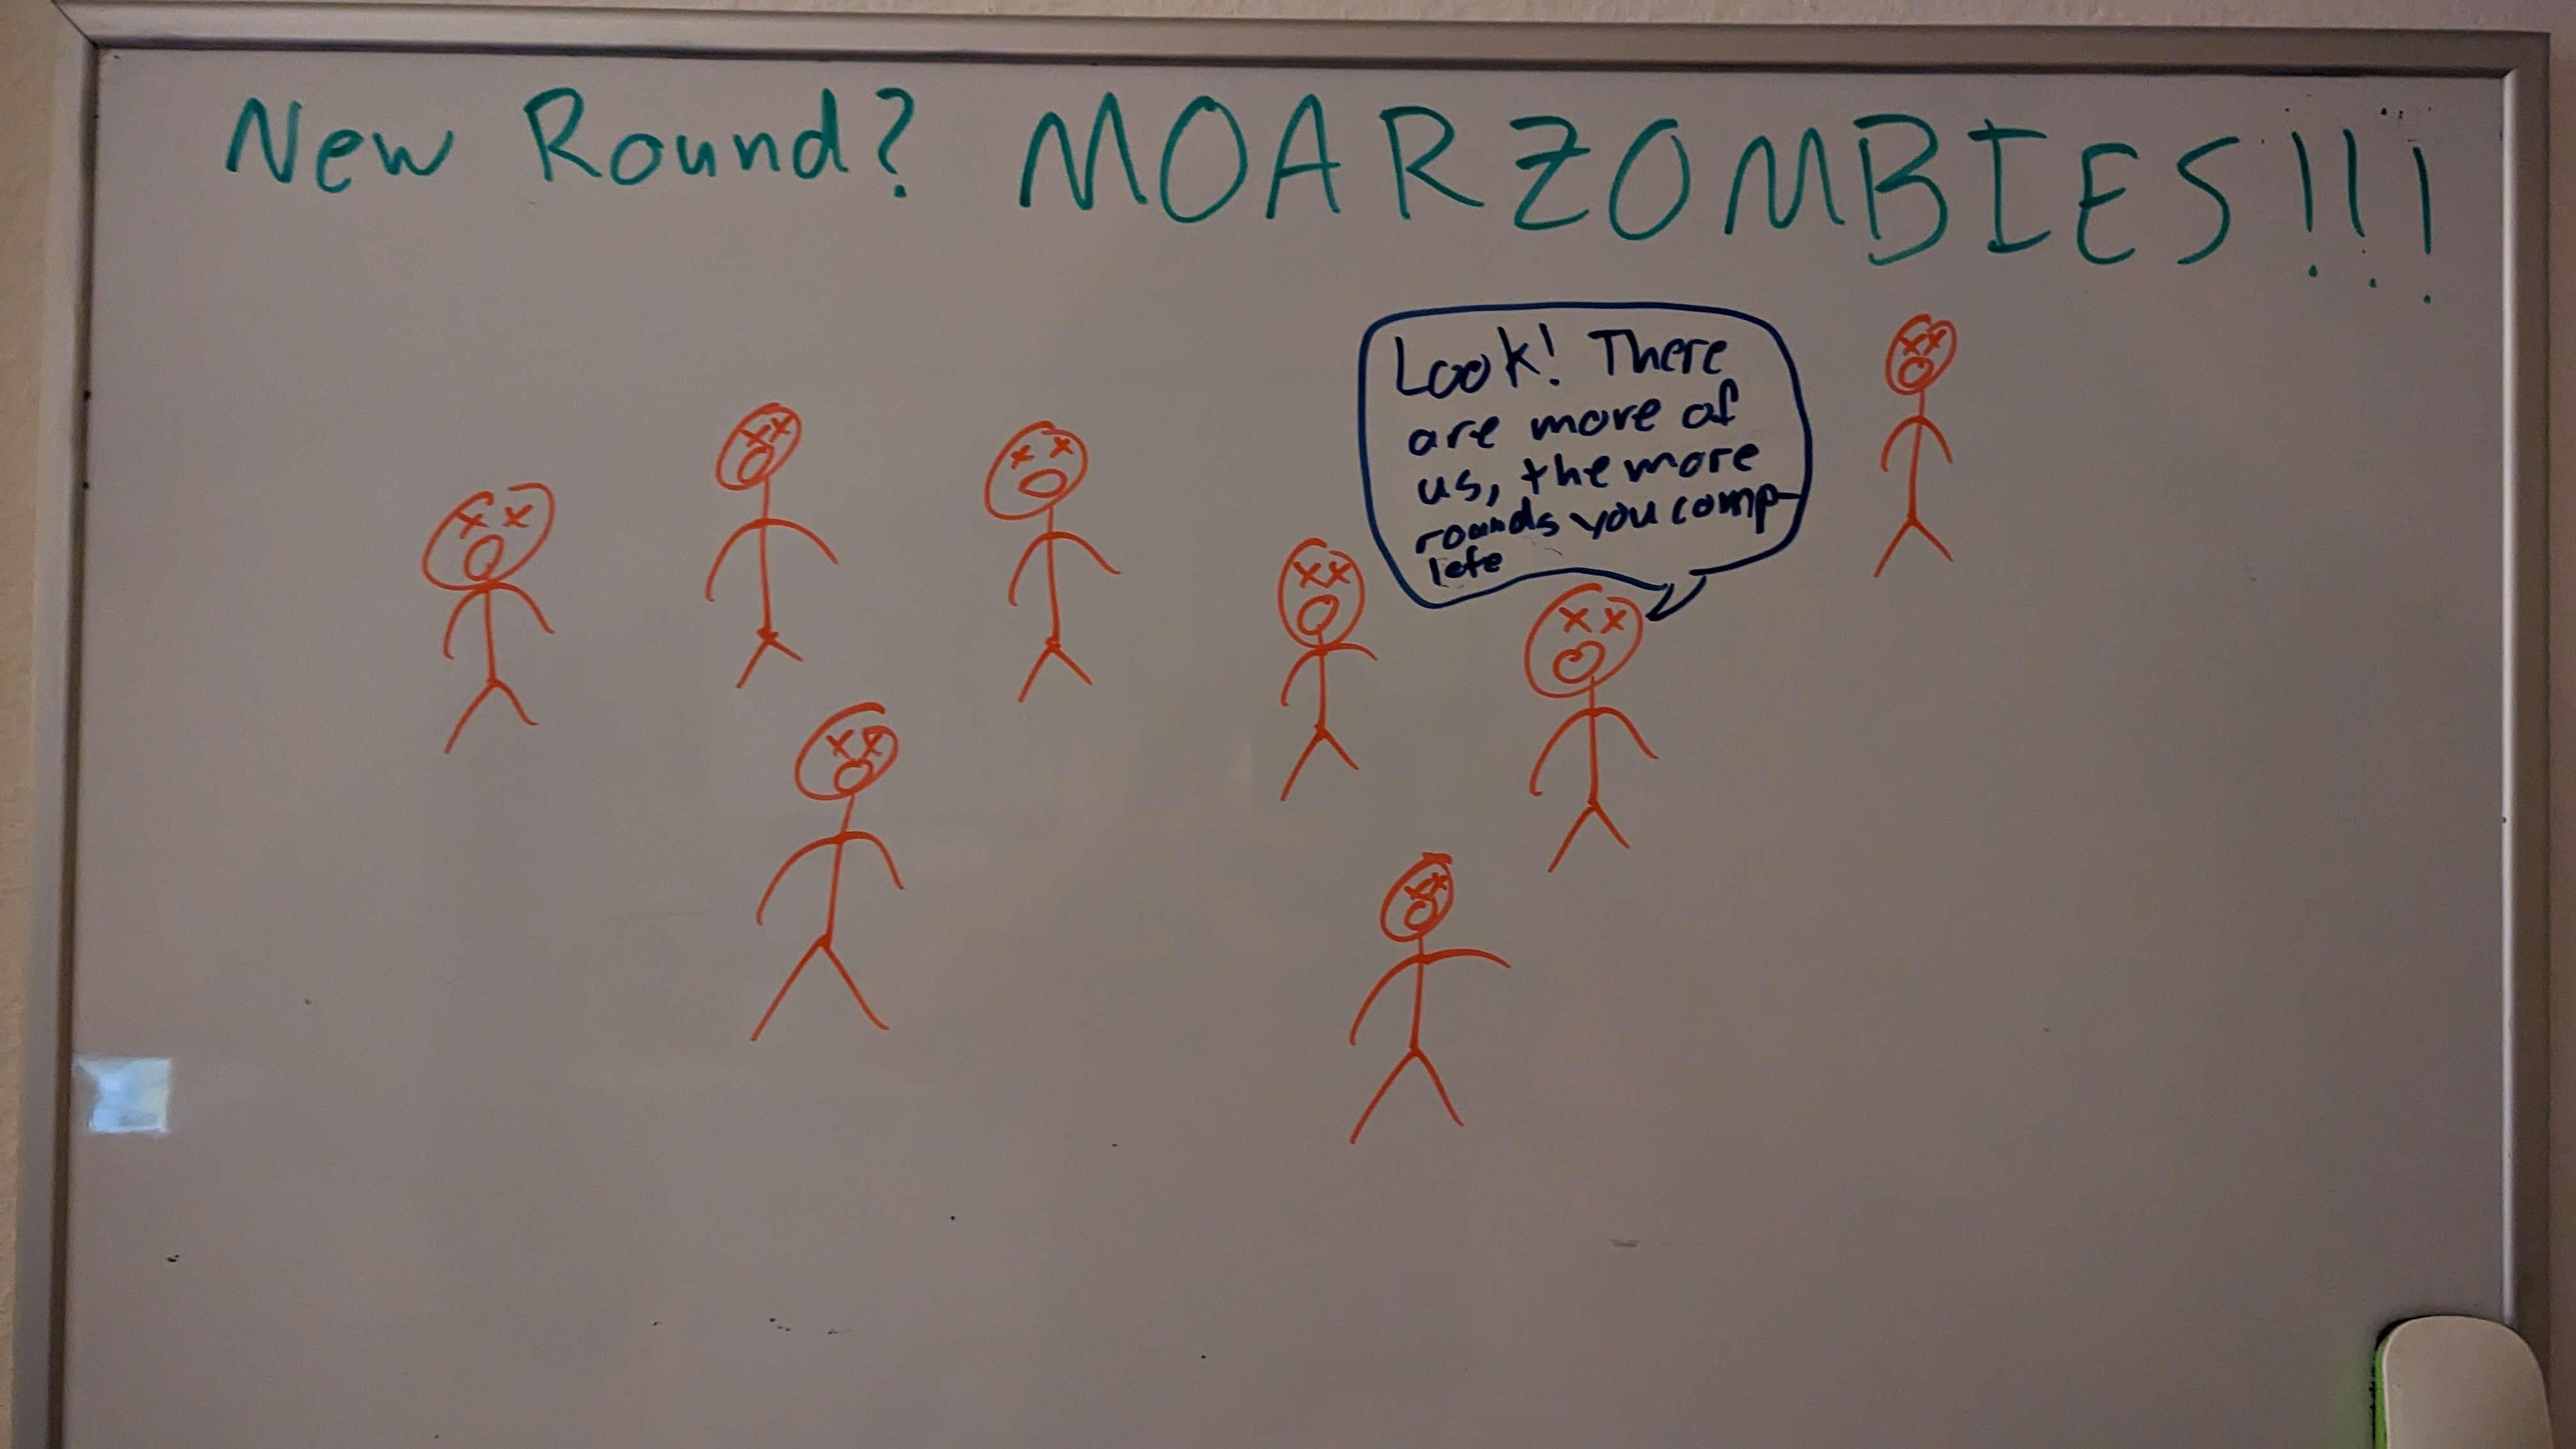 New Round? MOAR ZOMBIES!!!
Look! There
are more of
us, the more
rounds you comp-
lete